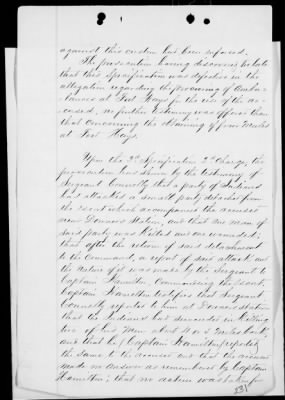 against this custom has been inforced.
The prosecution having discovered too late
that this specification was defective in the
allegation regarding the procuring of Ambu-
lances at Fort Hays for the use of the ac-
cused, no further testimony was offered than
that concerning the obtaining of four mules
at Fort Hays.
Upon the 2d Specification 2d Charge, the
prosecution has shown by the testimony of
Sergeant Connelly that a party of Indians
had attacked a small party detached from
the escort which accompanied the accused
near Downers Station, and that one man of
said party was killed and one wounded;
that after the return of said detachment
to the command, a report of said attack and
the nature of it was made by the Sergeant to
Captain Hamilton Commanding the escort.
Captain Hamilton testifies that Sergeant
Connelly reports to him at Downers Station
that the Indians had succeeded in killing
two of his men about 4 or 5 miles back,
and that he (Captain Hamilton) reported
the same to the accused and that the accused
made no answer as remembered by Captain
Hamilton; that no action was taken